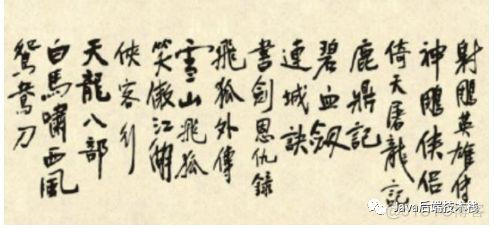 射鵰英雄傳
神鵰俠侶
倚天屠龍記
鹿鼎記
碧血劍
連城訣
書劍恩仇錄
飛狐外傳
雪山飛狐
笑傲江湖
俠客行
天龍八部
白馬嘯西風
鴛鴦刀
Java后端技术栈